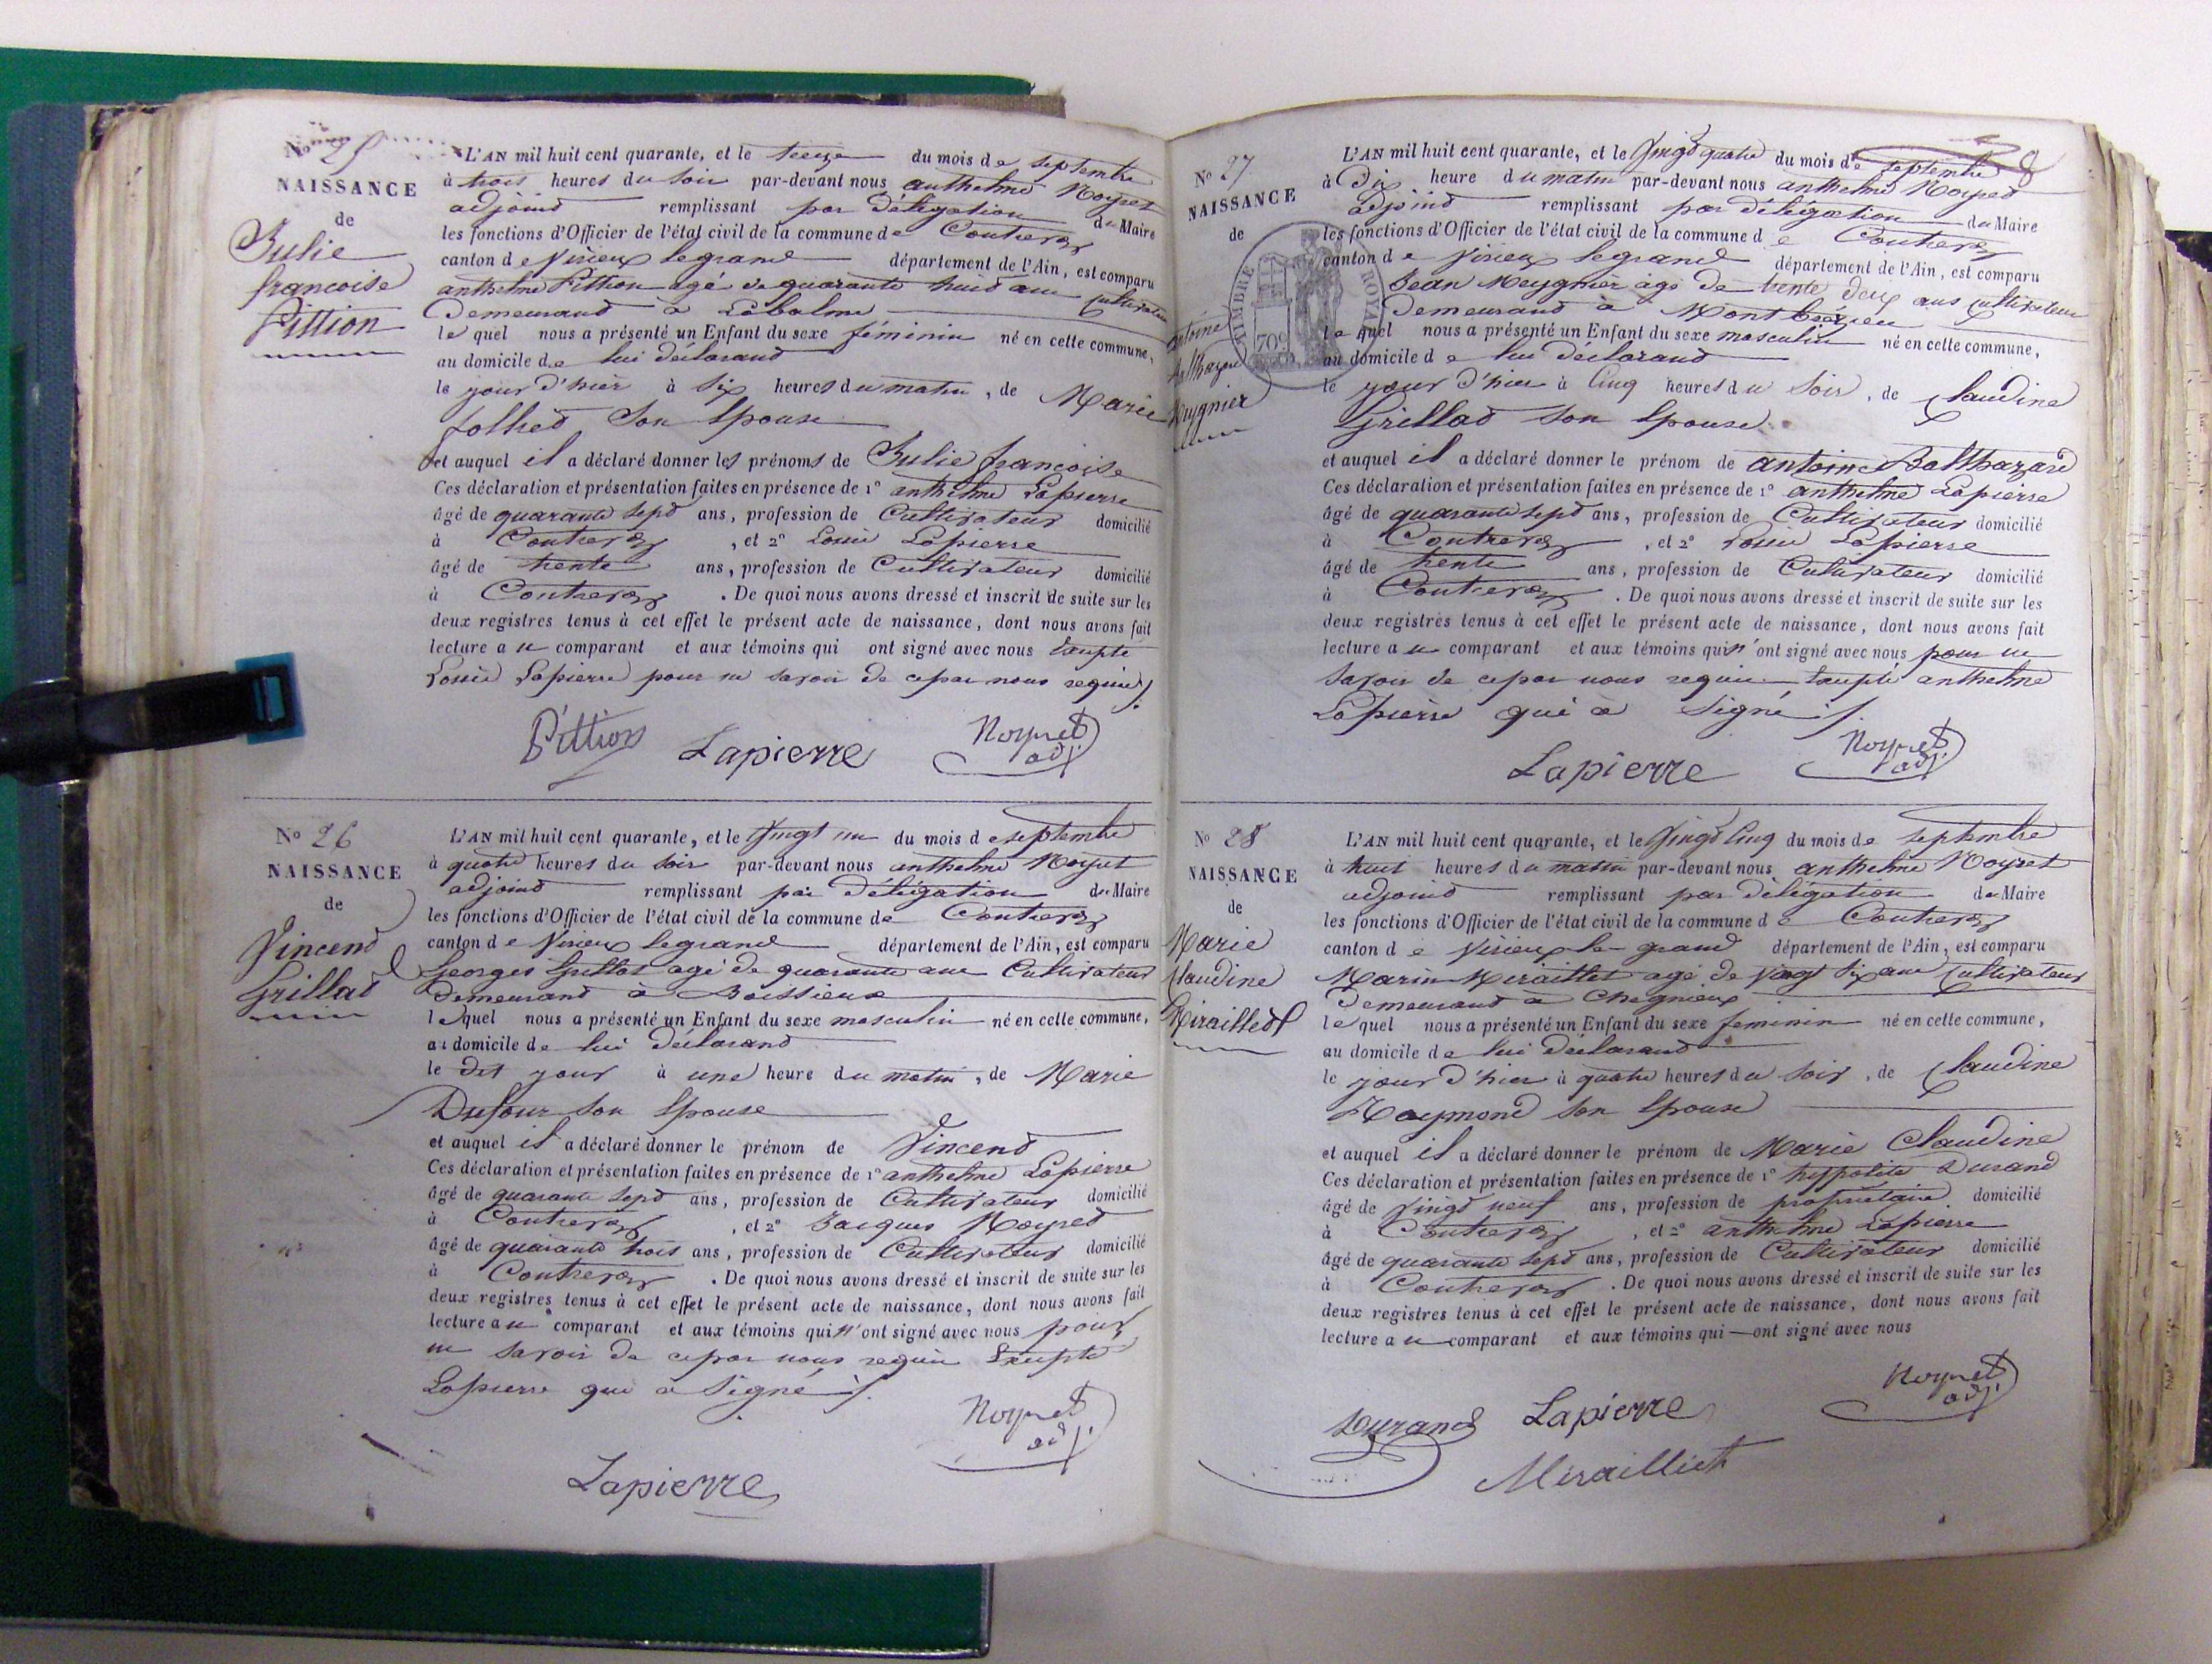 No 25
NAISSANCE
de
Julie
francoise
Pittion
L'AN mil huit cent quarante, et le treize du mois de septembre
à trois heures du soir par-devant nous anthelme Noyret
adjoind remplissant par délégation du Maire
les fonctions d'Officier de l'état civil de la commune de Contrevoz
canton de Virieux legrand département de l'Ain, est comparu
anthelme Pittion agé de quarante huid ans Cultivateur
Demeurand à Labalme
le quel nous a présenté un Enfant du sexe féminin né en cette commune,
au domicile de lui déclarand
le jour d'hier à six heures du matin, de Marie
Jolliet Son Epouse
et auquel il a déclaré donner les prénoms de Julie francoise
Ces déclaration et présentation faites en présence de 1° anthelme Lapierre
âgé de quarante sepd ans, profession de Cultivateur domicilié
à Contrevoz, et 2° Louis Lapierre
âgé de trente ans, profession de Cultivateur domicilié
à Contrevoz. De quoi nous avons dressé et inscrit de suite sur les
deux registres tenus à cet effet le présent acte de naissance, dont nous avons fait
lecture au comparant et aux témoins qui ont signé avec nous Excepté
Louis Lapierre pour ne savoir de cepar nous requis
Pittion Lapierre Noyret
adj.
No 26
NAISSANCE
de
Vincend
Grillad
L'AN mil huit cent quarante, et le Vingt un du mois de septembre
à quatre heures du soir par-devant nous anthelme Noyret
adjoind remplissant par délégation du Maire
les fonctions d'Officier de l'état civil de la commune de Contrevoz
canton de Virieux legrand département de l'Ain, est comparu
Georges Grillat agé de quarante ans Cultivateur
Demeurand à Boissieux
lequel nous a présenté un Enfant du sexe masculin né en cette commune,
au domicile de lui Déclarand
le dit jour à une heure du matin, de Marie
Dufour Son Epouse
et auquel il a déclaré donner le prénom de Vincend
Ces déclaration et présentation faites en présence de 1° anthelme Lapierre
âgé de quarante sepd ans, profession de Cultivateur domicilié
à Contrevoz, et 2° Jacques Noyred
âgé de quarante trois ans, profession de Cultivateur domicilié
à Contrevoz. De quoi nous avons dressé et inscrit de suite sur les
deux registres tenus à cet effet le présent acte de naissance, dont nous avons fait
lecture au comparant et aux témoins qui n'ont signé avec nous pour
ne savoir de cepar nous requis Excepté
Lapierre qui a Signé
Noyret
adj.
Lapierre
8
No 27
NAISSANCE
de
TIMBRE ROYAL
70c
antoine
Balthazard
Meygnier
L'AN mil huit cent quarante, et le Vingd quatre du mois de septembre
à Dix heure du matin par-devant nous anthelme Noyred
adjoind remplissant par délégation du Maire
les fonctions d'Officier de l'état civil de la commune de Contrevoz
canton de Virieux legrand département de l'Ain, est comparu
Jean Meygnier âgé de trente deux ans Cultivateur
Demeurand à Montbrezieu
lequel nous a présenté un Enfant du sexe masculin né en cette commune,
au domicile de lui déclarand
le jour d'hier à Cinq heures du Soir, de Claudine
Grillad son Epouse
et auquel il a déclaré donner le prénom de antoine Balthazard
Ces déclaration et présentation faites en présence de 1° anthelme Lapierre
âgé de quarante sepd ans, profession de Cultivateur domicilié
à Contrevoz, et 2° Louis Lapierre
âgé de trente ans, profession de Cultivateur domicilié
à Contrevoz. De quoi nous avons dressé et inscrit de suite sur les
deux registres tenus à cet effet le présent acte de naissance, dont nous avons fait
lecture au comparant et aux témoins qui n'ont signé avec nous pour ne
Savoir de cepar nous requis Excepté anthelme
Lapierre qui a Signé
Lapierre Noyret
adj.
No 28
NAISSANCE
de
Marie
Claudine
Mirailled
L'AN mil huit cent quarante, et le Vingd Cinq du mois de septembre
à huit heures du matin par-devant nous anthelme Noyret
adjoind remplissant par délégation du Maire
les fonctions d'Officier de l'état civil de la commune de Contrevoz
canton de Virieux le grand département de l'Ain, est comparu
Marin Miraillet agé de Vingt Six ans Cultivateur
Demeurand à Chegnieux
lequel nous a présenté un Enfant du sexe feminin né en cette commune,
au domicile de lui Déclarand
le jour d'hier à quatre heures du Soir, de Claudine
Raymond son Epouse
et auquel il a déclaré donner le prénom de Marie Claudine
Ces déclaration et présentation faites en présence de 1° hyppolite Durand
âgé de Vingd neuf ans, profession de propriétaire domicilié
à Contrevoz, et 2° anthelme Lapierre
âgé de quarante sepd ans, profession de Cultivateur domicilié
à Contrevoz. De quoi nous avons dressé et inscrit de suite sur les
deux registres tenus à cet effet le présent acte de naissance, dont nous avons fait
lecture au comparant et aux témoins qui — ont signé avec nous
Noyret
adj.
Durand Lapierre
Miraillied